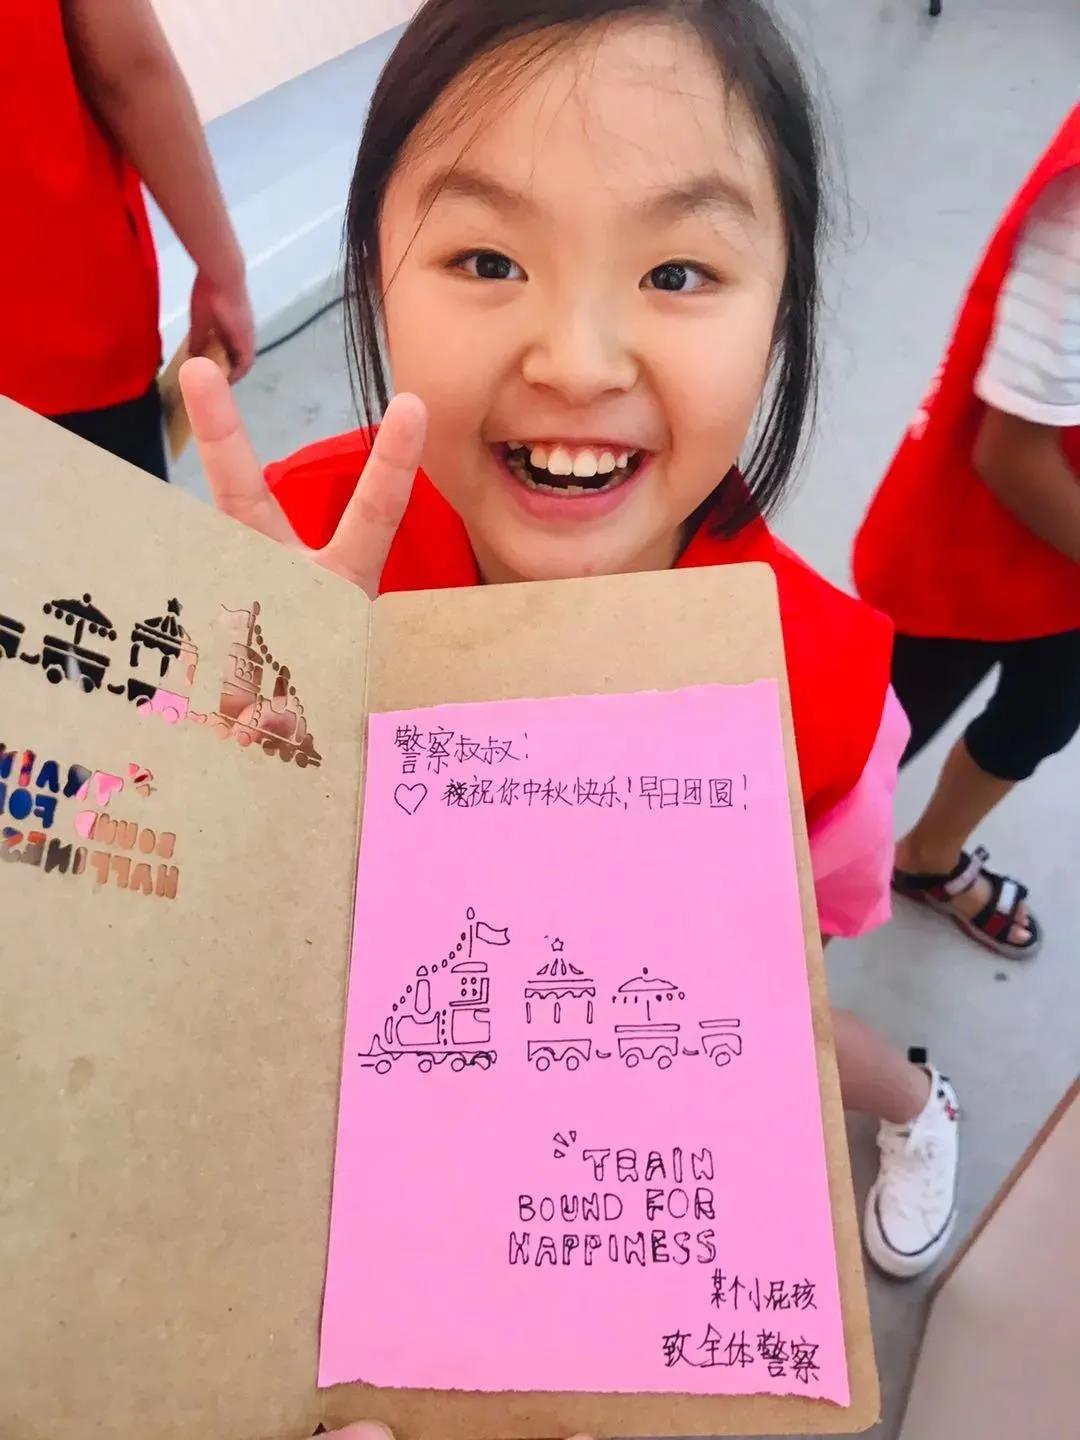 警察叔叔：
祝你中秋快乐！早日团圆！
TRAIN
BOUND FOR
HAPPINESS
某个小屁孩
致全体警察
TRAIN
FOR
BOUND
HAPPINES